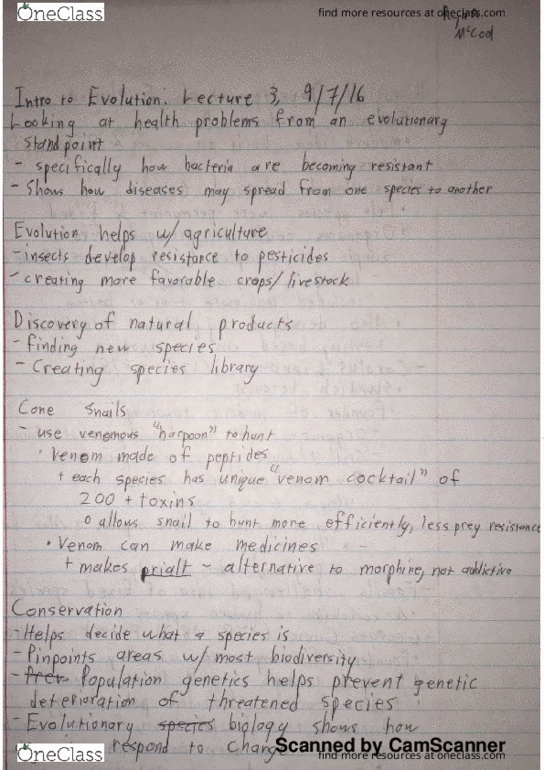 OneClass
find more resources at oneclass.com
McCool
Intro to Evolution: Lecture 3, 9/7/16
Looking at health problems from an evolutionary
standpoint
- specifically how bacteria are becoming resistant
- Shows how diseases may spread from one species to another
Evolution helps w/ agriculture
- insects develop resistance to pesticides
- creating more favorable crops/livestock
Discovery of natural products
- finding new species
- Creating species library
Cone Snails
- use venomous "harpoon" to hunt
· venom made of peptides
+ each species has unique "venom cocktail" of
200 + toxins
o allows snail to hunt more efficiently, less prey resistance
• Venom can make medicines
+ makes prialt - alternative to morphine, not addictive
Conservation
- Helps decide what a species is
- Pinpoints areas w/ most biodiversity
- Prev Population genetics helps prevent genetic
deterioration of threatened species
- Evolutionary species biology shows how
respond to change
Scanned by CamScanner
OneClass
find more resources at oneclass.com